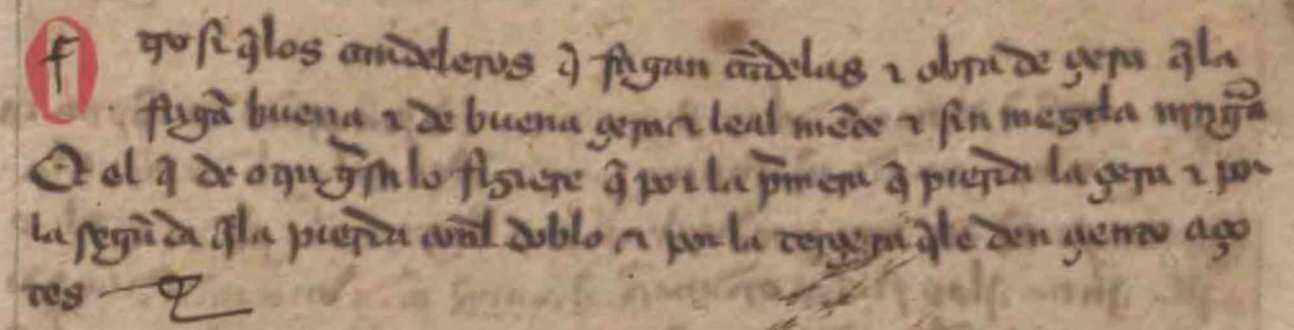 Otrosi q̃ los candeleros q̃ fagan cãdelas ⁊ obra de çera q̃ la
fagã buena ⁊ de buena çera ⁊ leal mẽte ⁊ sin mezcla ninguã
E el q̃ de otra gisa lo fiziere q̃ por la p̃mera q̃ pierda la çera ⁊ por
la segũda q̃ la pierda conel doblo ⁊ por la terçera q̃ le den çiento aço
tes